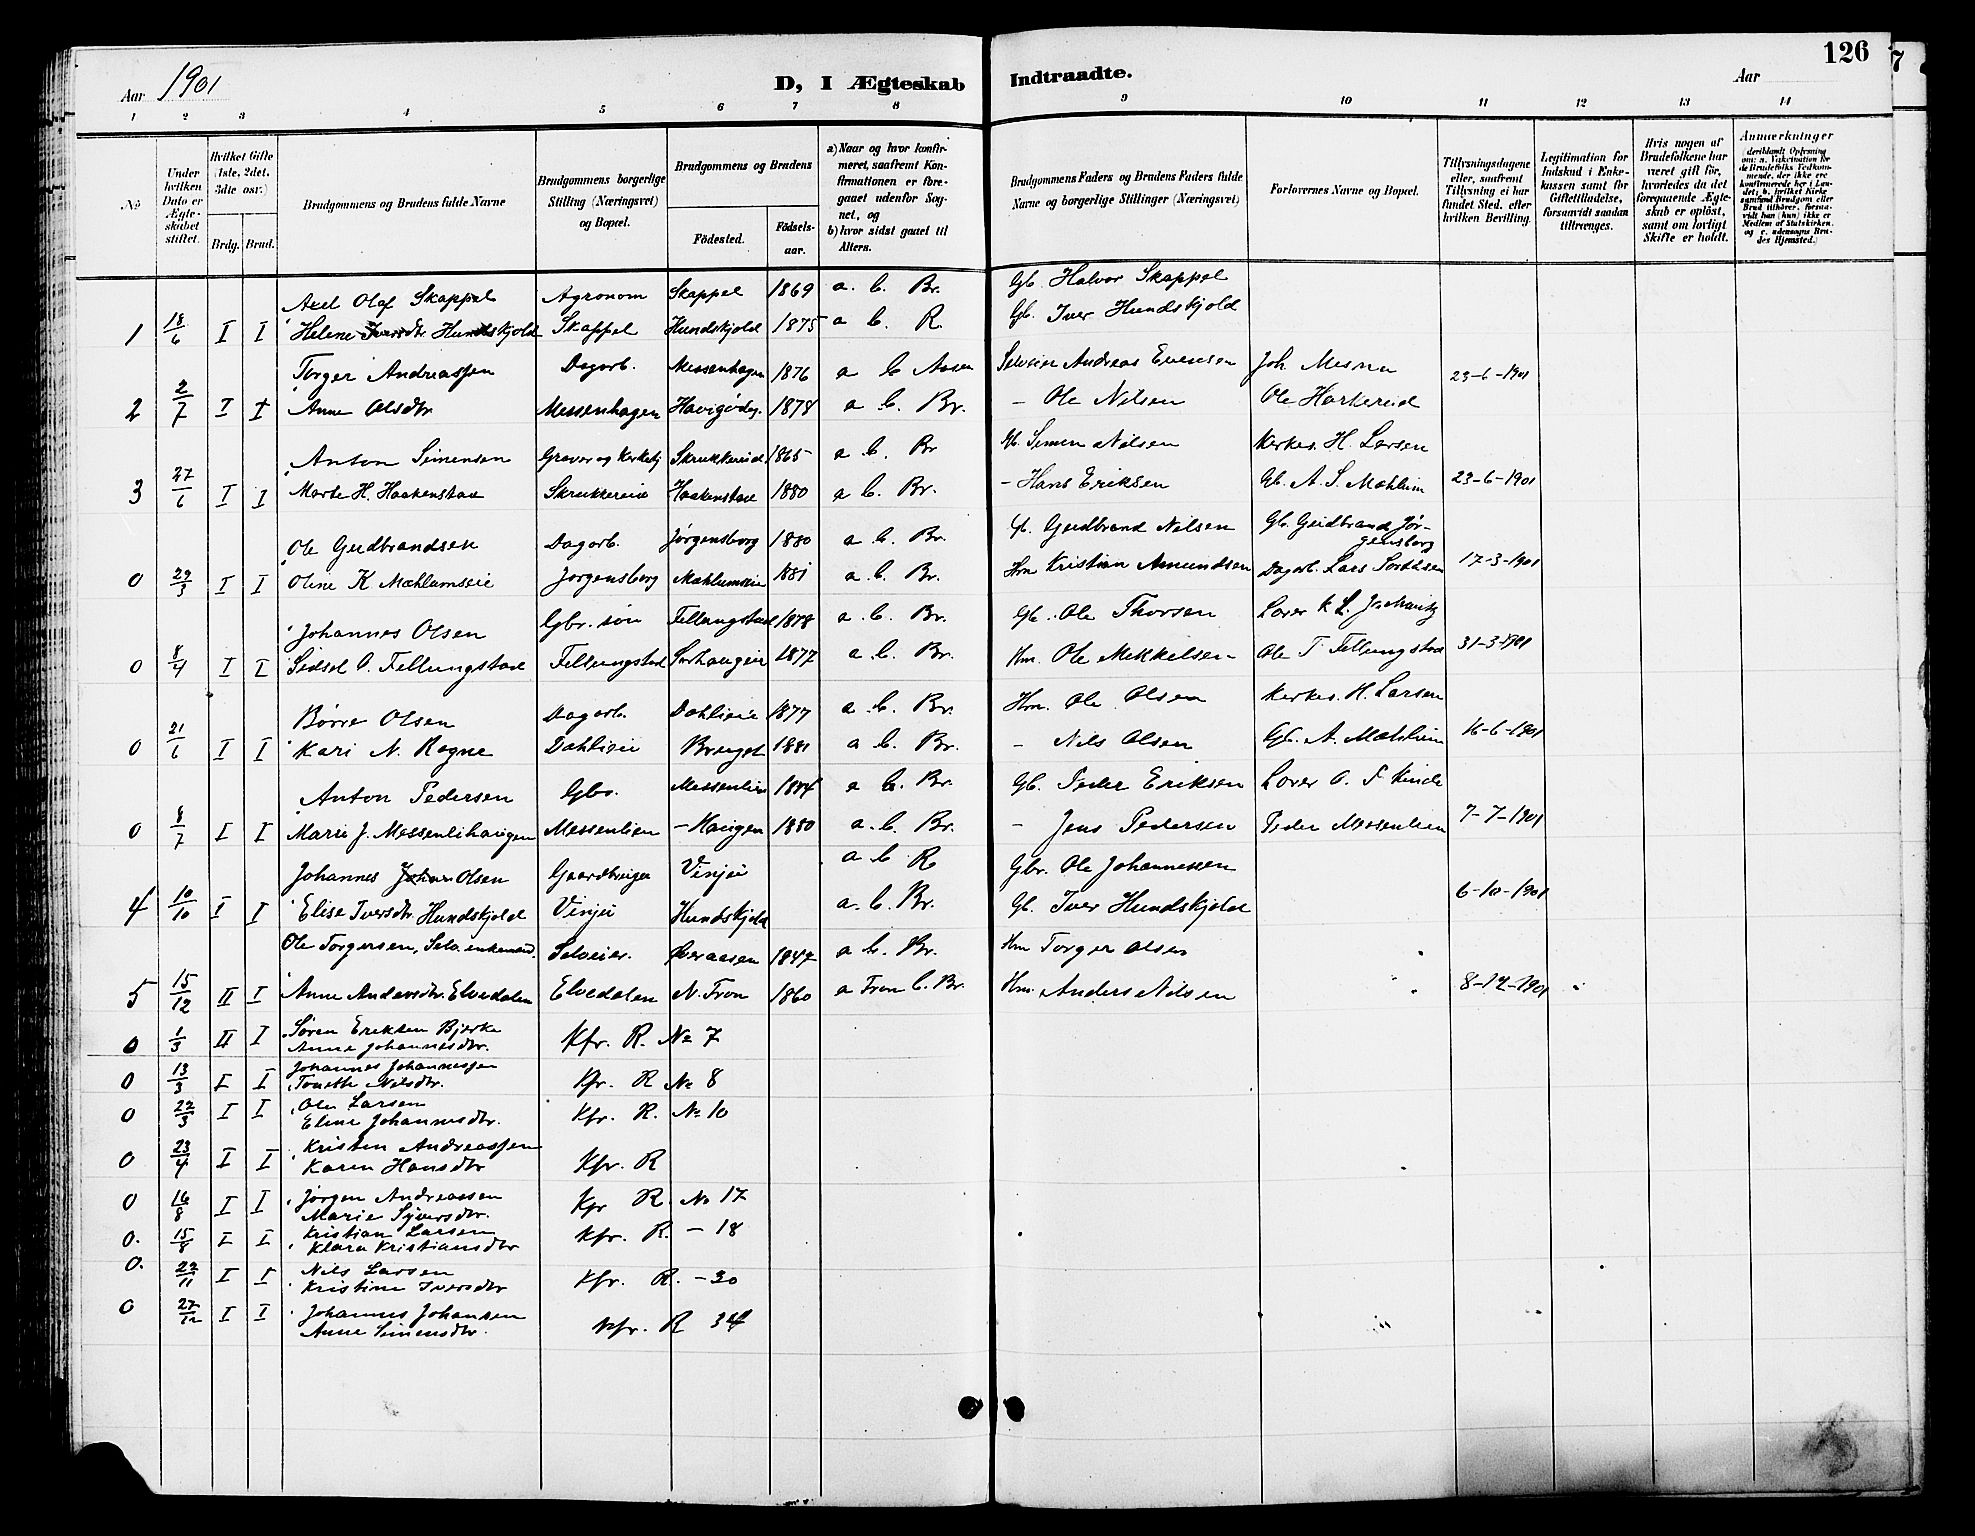 126
Aar 1901
D, I Ægteskab Indtraadte.
Aar
1 2 3 4 5 6 7 8 9 10 11 12 13 14
No
Under hvilken Dato er Ægteskabet stiftet.
Hvilket Gifte (1ste, 2det, 3die osv.)
Brdg. Brud.
Brudgommens og Brudens fulde Navne
Brudgommens borgerlige Stilling (Næringsvei) og Bopæl.
Brudgommens og Brudens
Födested.
Födselsaar.
a) Naar og hvor konfirmeret, saafremt Konfirmationen er foregaaet udenfor Sognet, og
b) hvor sidst gaaet til Alters.
Brudgommens Faders og Brudens Faders fulde Navne og borgerlige Stillinger (Næringsvei)
Forlovernes Navne og Bopæl.
Tillysningsdagene eller, saafremt Tillysning ei har fundet Sted, efter hvilken Bevilling.
Legitimation for Indskud i Enkekassen samt for Giftetilladelse, forsaavidt saadan tiltrænges.
Hvis nogen af Brudefolkene har været gift för, hvorledes da det foregaaende Ægteskab er oplöst, samt om lovligt Skifte er holdt.
Anmærkninger
Axel Olaf Skappel Agronom Skappel 1869 a. b. Br. Gb. Halvor Skappel
1 18/6 I I Helene Iversdtr Hundskjold Skappel Hundskjold 1875 a b. R Gb. Iver Hundskjold
Torger Andreassen Dagarb. Messenhagen 1876 a b Aasen Selveier Andreas Evensen Joh. Mesna 23-6-1901
2 2/7 I I Anne Olsdtr Messenhagen 1878 a b. Br. – Ole Nilsen Ole Harkereid
Anton Simensen Graver og Skrukkereid 1865 a b. Br Gb. Simen Nilsen Kirkes. H. Larsen
3 27/6 I I Marte H. Haakenstad Skrukkereie Haakenstad 1880 a b. Br. – Hans Eriksen Gb. A. S. Mæhlum 23-6-1901
Ole Gudbrandsen Dagarb. Jørgensborg 1880 a b. Br. Gudbrand Nilsen Gb. Gudbrand Jørgensborg
0 29/3 I I Oline K Mæhlumseie Jørgensborg Mæhlumseie 1881 a. b. Br. Hm Kristian Amundsen Dagarb. Lars 17-3-1901
Johannes Olsen Gbr. søn Fellungstad 1878 a b. Br. Gb. Ole Thorsen
0 8/4 I I Sidsel O. Fellungstad Fellungstad 1877 a b. Br. Hm. Ole Mikkelsen Ole T Fellungstad 31-3-1901
Børre Olsen Dagarb. Dahlseie 1877 a b. Br. Hm. Ole Olsen Kirkes. H. Larsen
0 21/6 I I Kari N. Rogne 1881 a b. Br. – Nils Olsen Gb. A. Mæhlum 16-6-1901
Anton Pedersen Gbr. Messenlien a b. Br Gb. Peder Eriksen
0 8/7 I I Marie J. Messenlihaugen Messenlien – Haugen 1880 a. b. Br. – Jens Pedersen Peder Messenlien 7-7-1901
Johannes Olsen Gaardbruger a b R Gbr. Ole Johannessen
4 10/10 I I Elise Iversdtr Hundskjold Hundskjold a. b. Br. Gb. Iver Hundskjold 6-10-1901
Ole Torgersen, Selv. enkemand. Selveier. Øveraasen 1847 a b. Br. Hm Torger Olsen
5 15/12 II I Anne Andersdtr. Elvedalen Elvedalen N. Fron 1860 a Fron b. Br. Hm. Anders Nilsen 8-12-1901
Søren Eriksen Bjerke
0 1/3 II I Anne Johannesdtr. Kfr. R. No 7
Johannes Johannessen
0 13/3 I I Nilsdtr. Kfr. R No 8
Ole Larsen
0 22/3 I I Eline Johannesdtr. Kfr. R. No 10
Kristen Andreassen
0 23/4 I I Karen Hansdtr Kfr. R
Jørgen Andreassen
0 16/8 I I Marie Syversdtr. Kfr R. No 17
Kristian Larsen
0. 15/8 I I Klara Kristiansdtr Kfr. R. – 18
0. Nils Larsen
22/11 I I Kristine Iversdtr Kfr. R. – 30
0 27/12 I I Johannes Johansen
Anne Simensdtr. Kfr. R 34